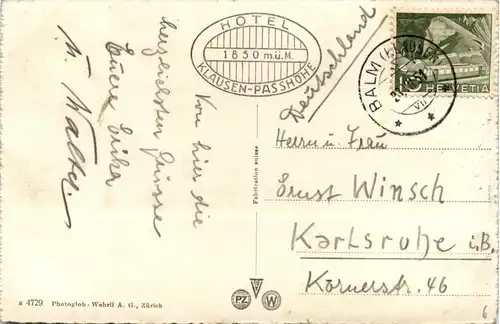 HOTEL
1850 m.ü.M.
KLAUSEN-PASSHÖHE
Von hier die
herzlichsten Grüsse
Euere Erika
u. Walter.
Deutschland
HELVETIA
BALM (KLAUSEN)
VII
Herrn u. Frau
Ernst Winsch
Karlsruhe i.B.
Körnerstr. 46
Fabrication suisse
a 4729 Photoglob-Wehrli A. G., Zürich
PZ W
6